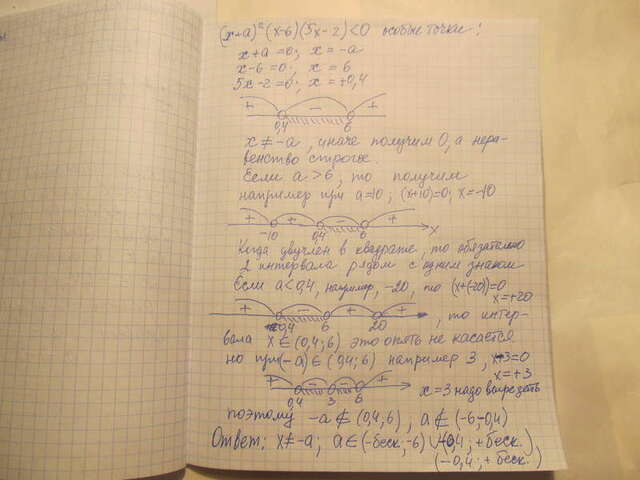 (x+a)²(x-6)(5x-2)<0 особые точки:
x+a=0; x=-a
x-6=0; x=6
5x-2=0; x=+0,4
+ - +
0,4 6
x≠-a, иначе получим 0, а нера-
венство строгое.
Если a>6, то получим
например при a=10; (x+10)=0; x=-10
+ + - +
-10 0,4 6 x
Когда двучлен в квадрате, то обязательно
2 интервала рядом с одним знаком
Если a<0,4, например, -20, то (x+(-20))=0
x=+20
+ - + +
0,4 6 20 , то интер-
вала x∈(0,4;6) это опять не касается
но при (-a)∈(0,4;6) например 3, x-3=0
x=+3
+ - - +
0,4 3 6 x=3 надо вырезать
поэтому -a∉(0,4,6), a∉(-6;-0,4)
Ответ: x≠-a; a∈(-беск,-6) (-0,4; +беск.)
(-0,4; +беск.)